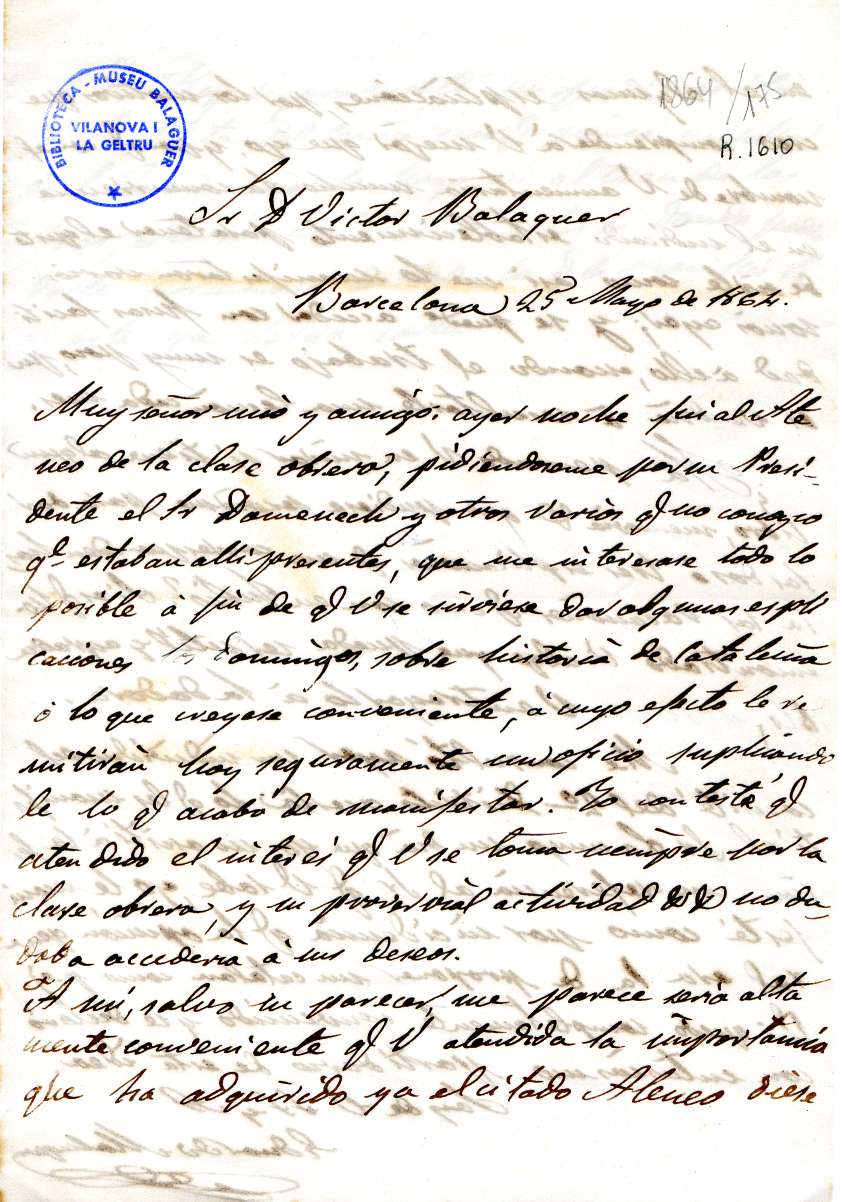 BIBLIOTECA - MUSEU BALAGUER
VILANOVA I
LA GELTRU
1864/175
R.1610
Sr D Victor Balaguer
Barcelona 25 Mayo de 1864.
Muy señor mio y amigo: ayer noche fui al Ate
neo de la clase obrera, pidiendoseme por su Presi-
dente el Sr Domenech y otros varios q no conozco
qe estaban alli presentes, que me interesase todo lo
posible à fin de q V se sirviese dar algunas espli
caciones los domingos, sobre historia de Cataluña
ó lo que creyese conveniente, à cuyo efecto le re
mitiràn hoy seguramente un oficio suplicando
le lo q acabo de manifestar. Yo contesté q
atendido el interés q V se toma siempre por la
clase obrera, y su provervial actividad &&, no du-
daba accederia à sus deseos.
A mi, salvo su parecer, me parece seria alta
mente conveniente q V atendida la importancia
que ha adquirido ya el citado Ateneo diese